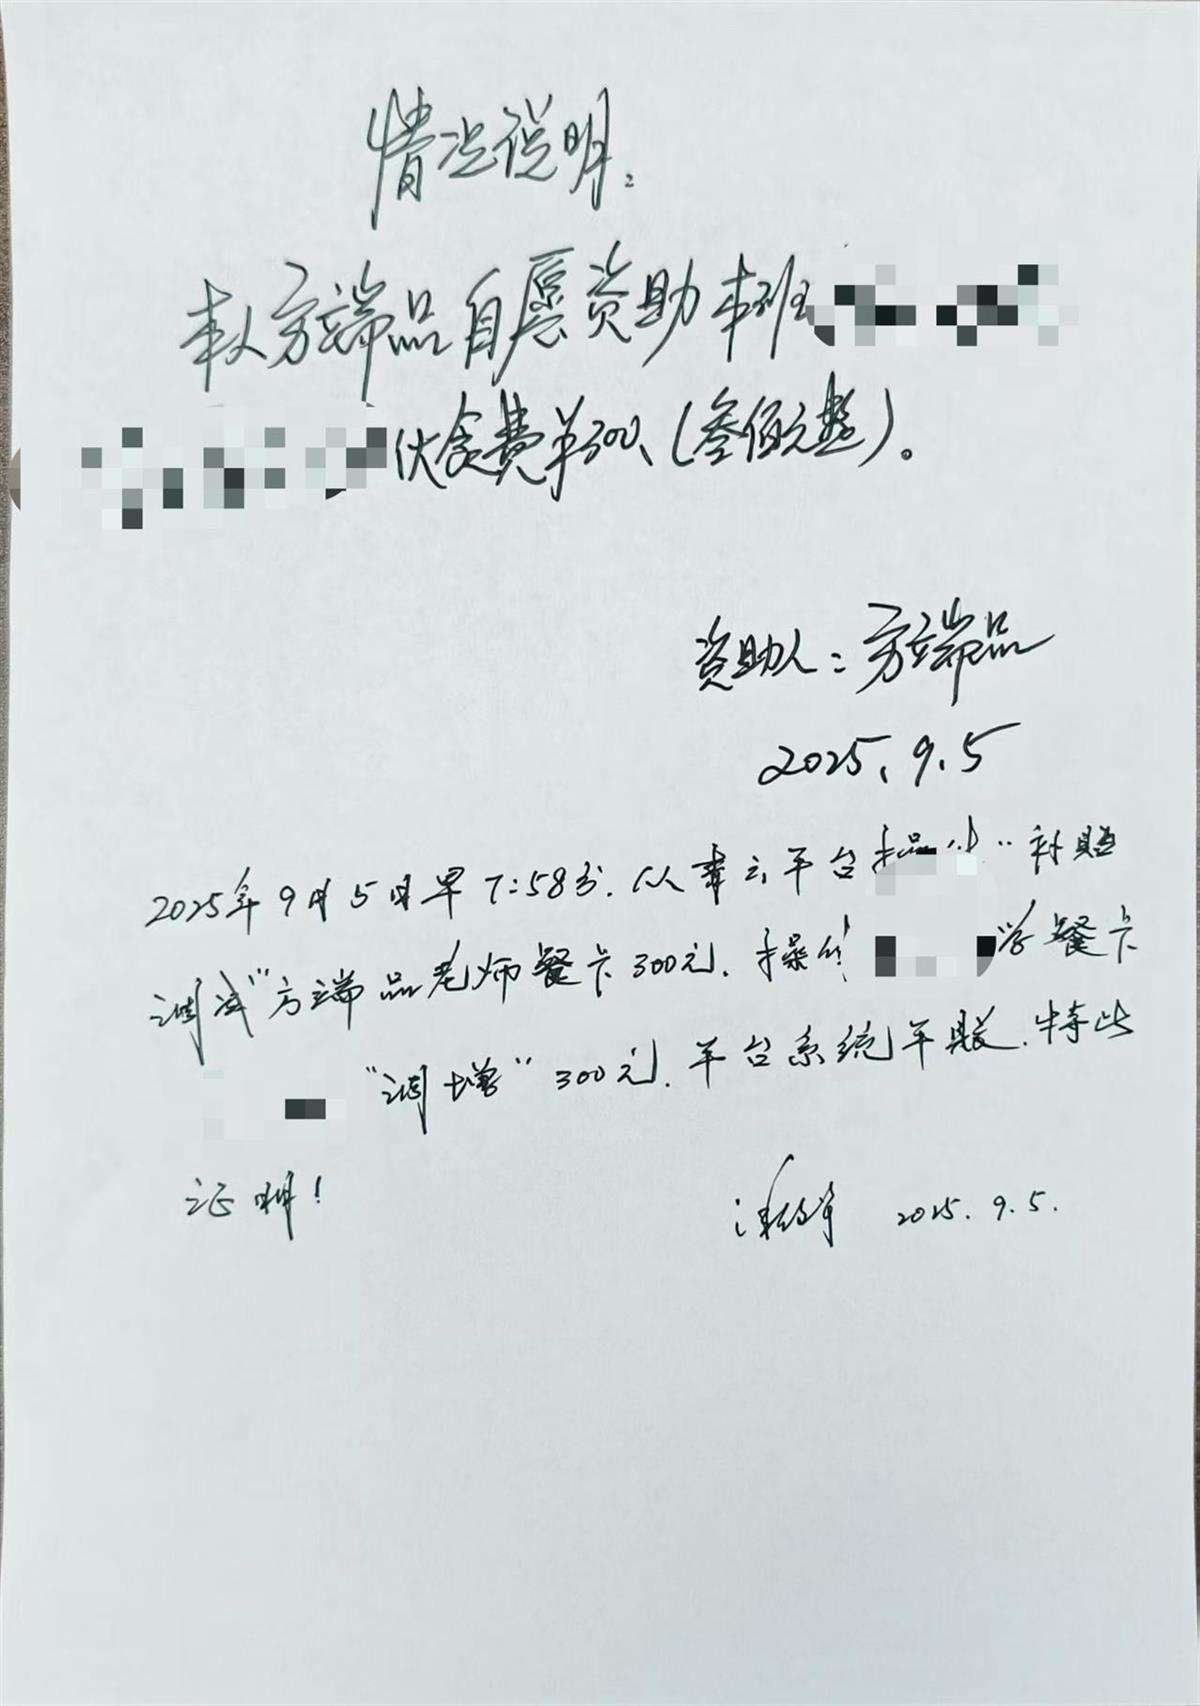 情况说明：
本人方端品自愿资助本班
伙食费￥300、（叁佰元整）。
资助人：方端品
2025.9.5
2025年9月5日早7:58分.从云平台操作"补贴
调减"方端品老师餐卡300元.操作 学餐卡
"调增"300元.平台系统平账.特此
证明！
2025.9.5.